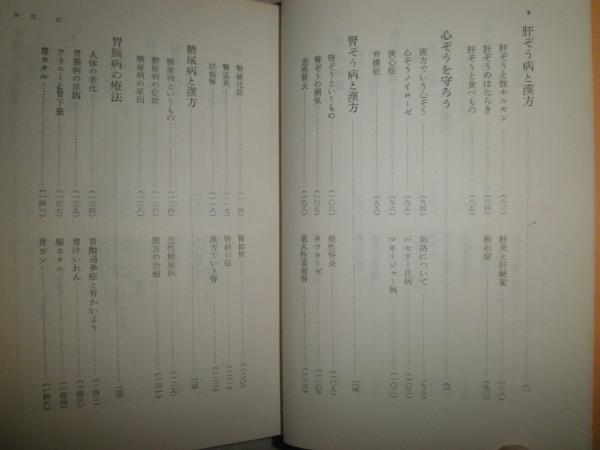 肝ぞう病と漢方
肝ぞうと性ホルモン……(八二)
肝ぞうのはたらき……(八五)
肝ぞうと食べもの……(八七)
肝炎と肝硬変……(八八)
胆石症……(九〇)
心ぞうを守ろう
漢方でいう心ぞう……(九四)
心ぞうノイローゼ……(九六)
狭心症……(九九)
弁膜症……(九九)
刺絡について……(九九)
バセドー氏病……(一〇一)
マネージャー病……(一〇二)
腎ぞう病と漢方
腎ぞうというもの……(一〇六)
腎ぞうの病気……(一〇七)
急性腎炎……(一〇八)
慢性腎炎……(一〇九)
ネフローゼ……(一一〇)
老人性萎縮腎
腎硬化症
腎盂炎……(一一七)
妊娠腎……(一一八)
腎臓核……(一二〇)
腎結石症……(一二一)
漢方でいう腎
糖尿病と漢方
糖尿病というもの……(一二四)
糖尿病の症状
糖尿病の原因……(一二八)
急性糖尿病……(一二九)
漢方の治療……(一三一)
胃腸病の療法
人体の老化……(一三四)
胃腸病の原因……(一三五)
アトニーと胃下垂……(一三七)
胃カタル……(一四一)
胃酸過多症と胃かいよう……(一四二)
胃けいれん
腸カタル……(一四四)
胃ガン……(一四六)